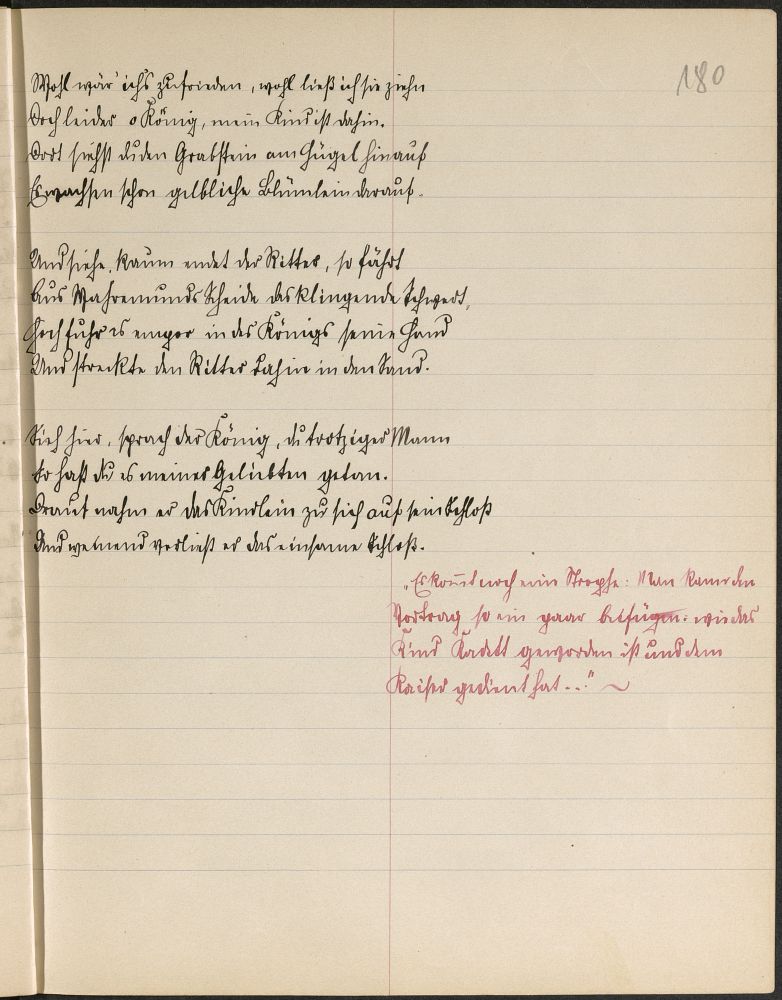 180
Wohl wär' ich's zufrieden, wohl ließ ich sie ziehn
Doch leider o König, mein Kind ist dahin.
Dort siehst du den Grabstein am Hügel hinauf
Es wachsen schon gelbliche Blümlein darauf.
Und siehe, kaum endet der Ritter, so fährt
Aus Wahremunds Scheide das klingende Schwert,
Hoch fuhr es empor in des Königs seine Hand
Und streckte den Ritter dahin in den Sand.
Sieh hier, sprach der König, du trotziger Mann
So hast du es meiner Geliebten getan.
Drauf nahm er das Kindlein zu sich auf sein Schloß
Und weinend verließ er das einsame Schloß.
"Es kommt noch eine Strophe: Man kann den
Vortrag so ein paar beifügen: wie das
Kind Kadett geworden ist und dem
Kaiser gedient hat..." ~